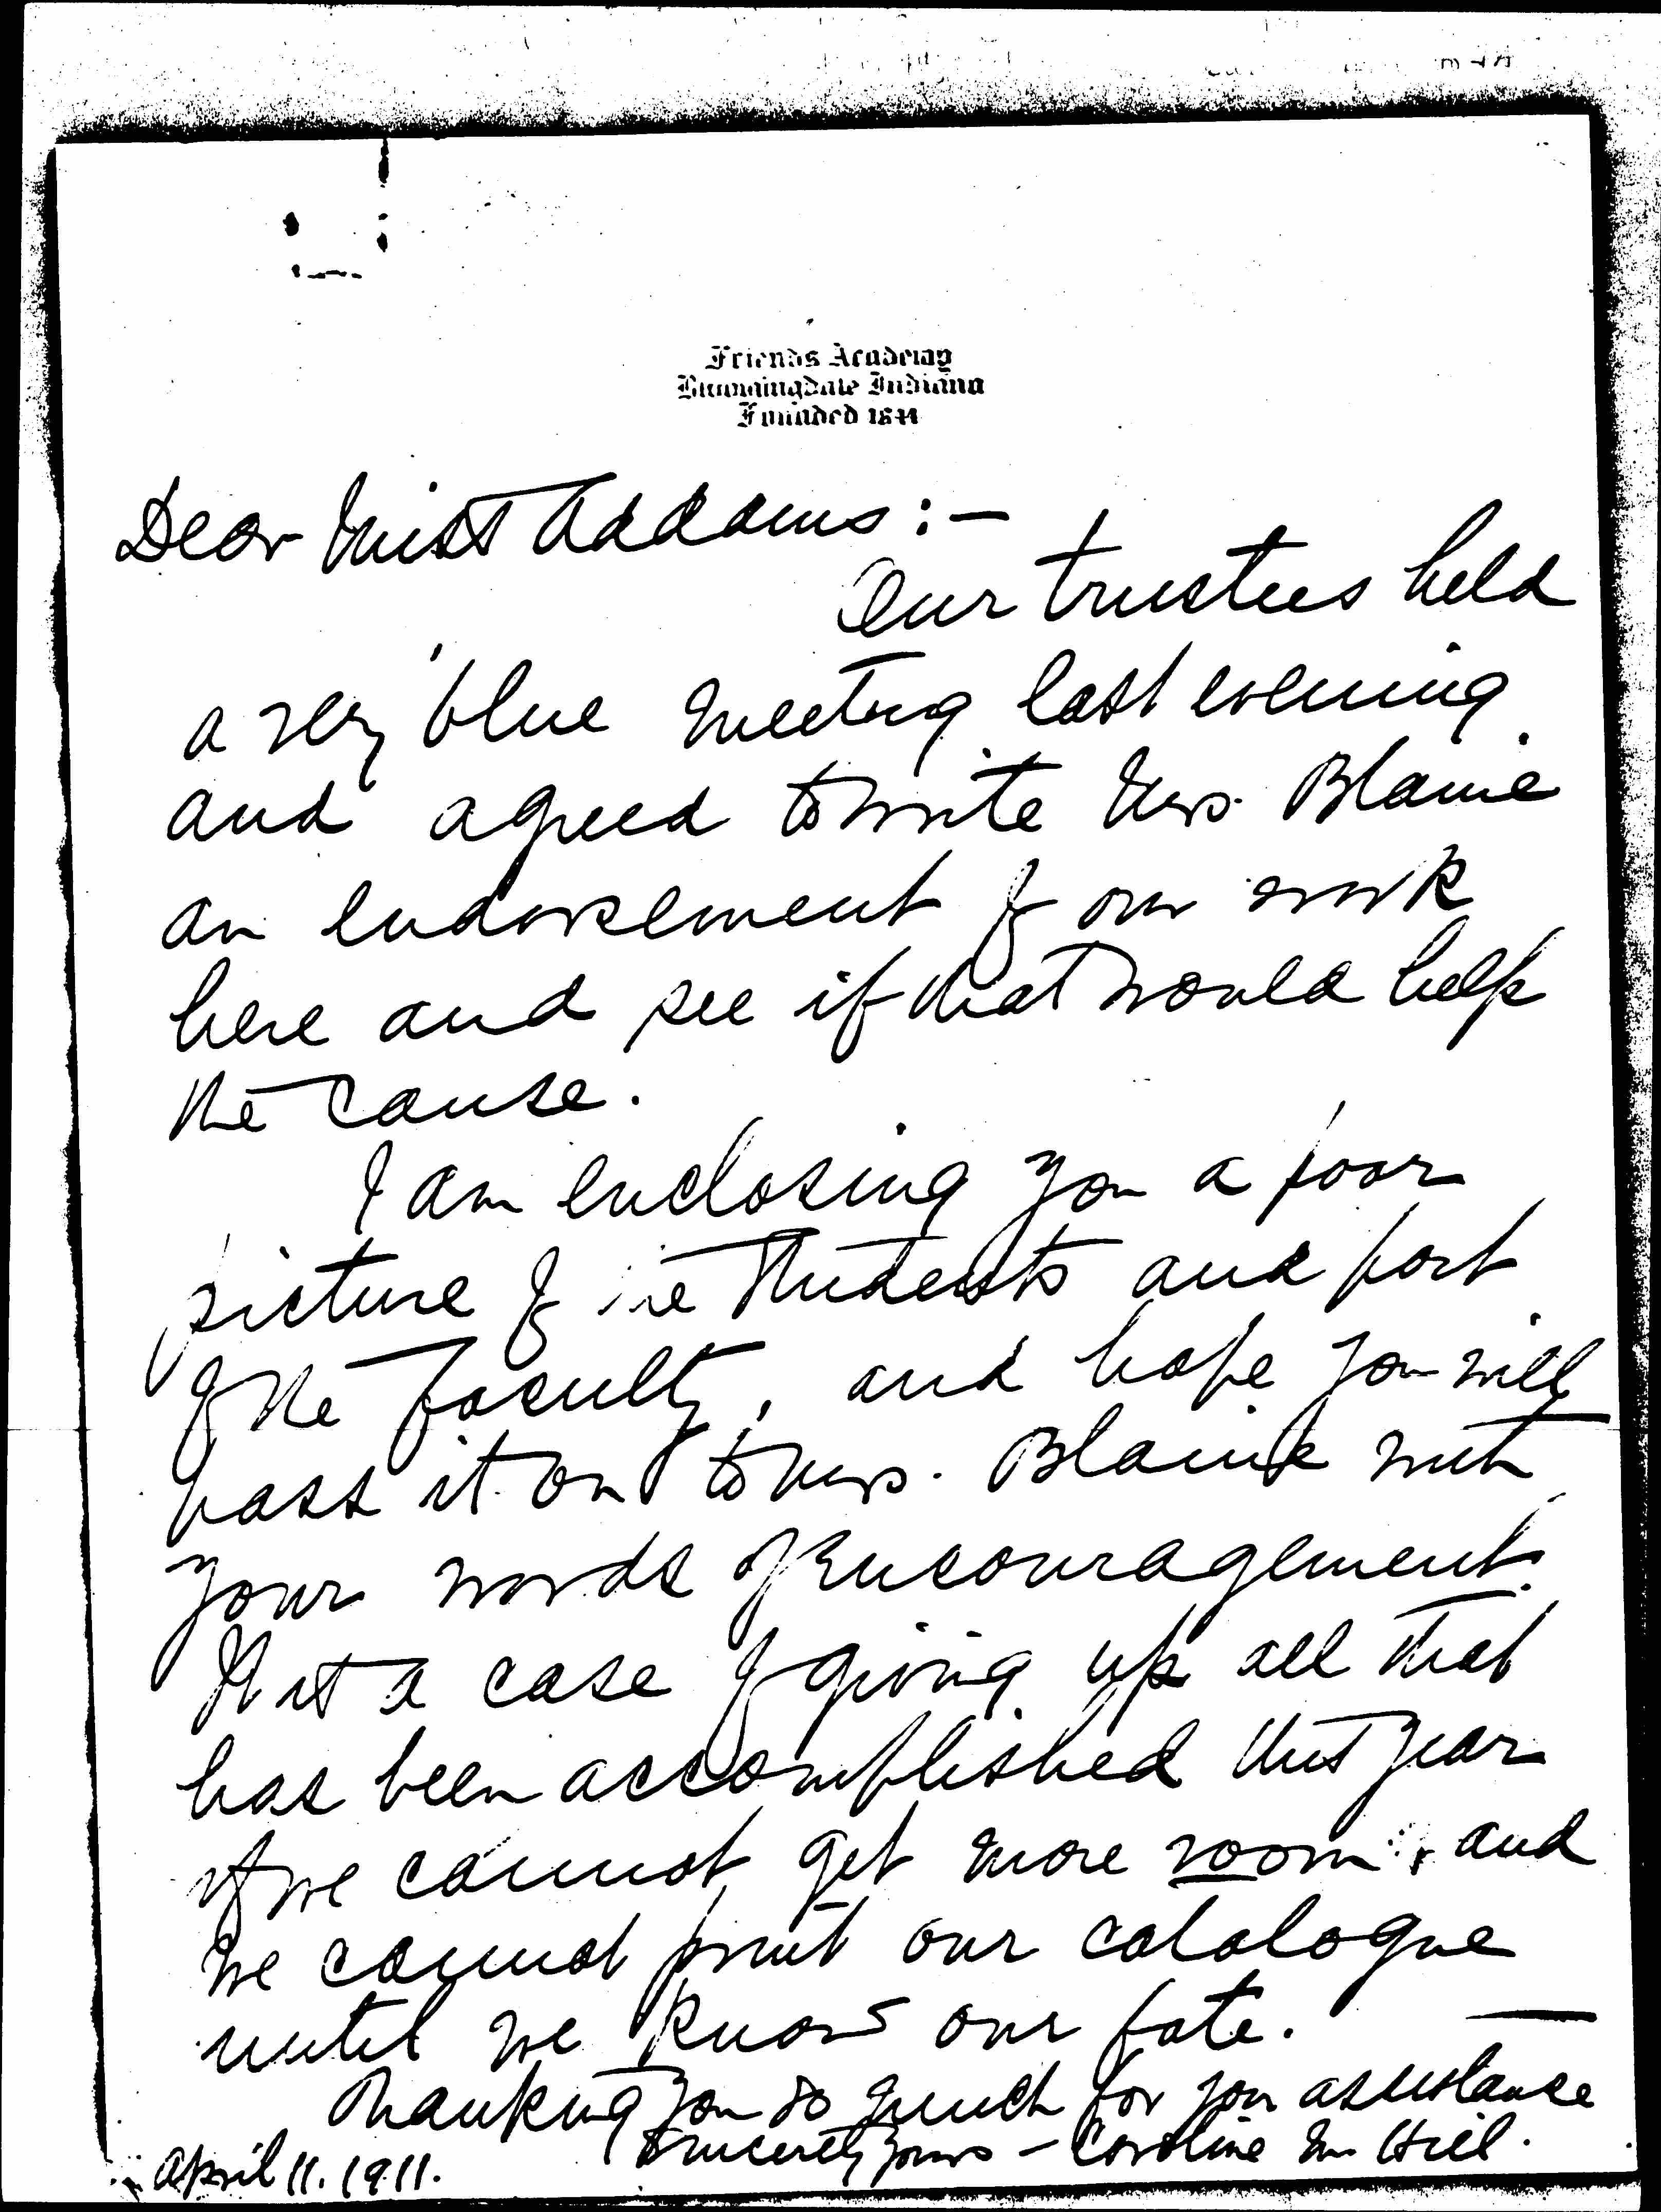 Friends Academy
Bloomingdale Indiana
Founded 18
Dear Miss Addams:—
Our trustees held
a very blue meeting last evening
and agreed to write Mrs. Blaine
an endorsement of our work
here and see if that would help
the cause.
I am enclosing you a poor
picture of the students and part
of the faculty, and hope you will
pass it on to Mrs. Blaine with
your words of encouragement.
It is a case of giving up all that
has been accomplished this year
if we cannot get more room, and
we cannot print our catalogue
until we know our fate. —
Thanking you so much for your assistance
Sincerely yours — Caroline M. Hill.
April 11. 1911.